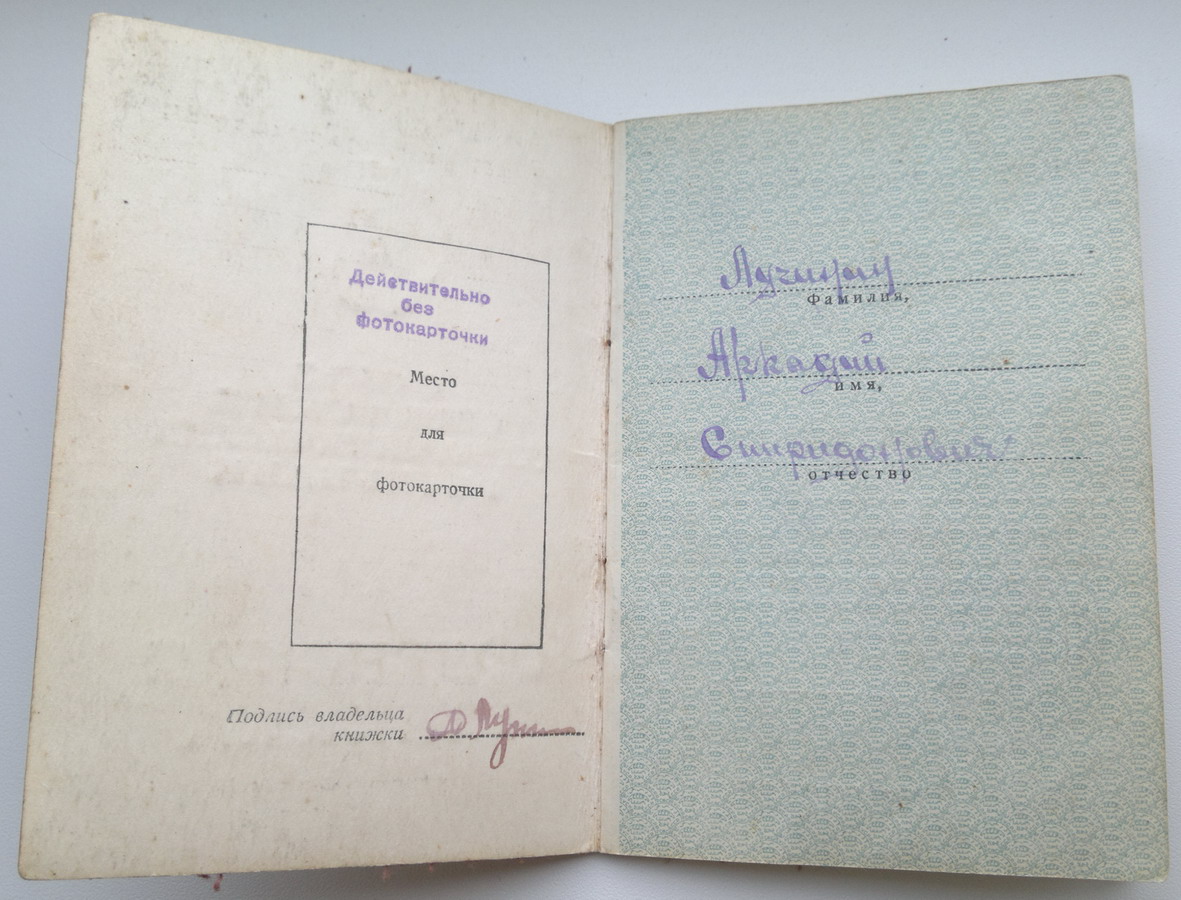 Действительно
без
фотокарточки
Место
для
фотокарточки
Подпись владельца
книжки
Фамилия,
Аркадий
имя,
Спиридонович
отчество